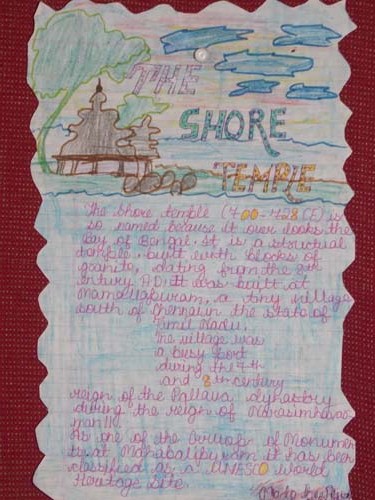 THE
SHORE
TEMPLE
The Shore temple (700-728 CE) is
so named because it over looks the
Bay of Bengal. It is a structural
temple, built with blocks of
granite, dating from the 8th
century AD. It was built at
Mamallapuram, a tiny village
south of Chennai in the state of
Tamil Nadu.
The village was
a busy port
during the 7th
and 8th century
reign of the Pallava dynasty
during the reign of Narasimhava-
man II.
As one of the Group of Monumen
ts at Mahabalipuram it has been
classified as a UNESCO World
Heritage Site.